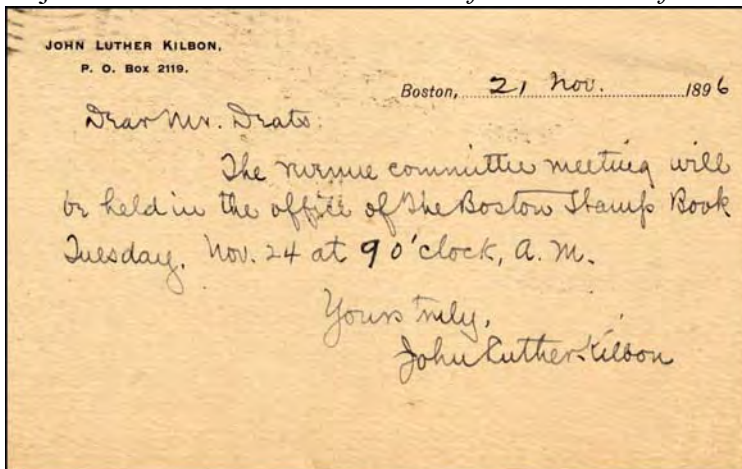 JOHN LUTHER KILBON,
P. O. BOX 2119.
Boston, 21 Nov. 1896
Dear Mr. Deats:
The revenue committee meeting will
be held in the office of The Boston Stamp Book
Tuesday, Nov. 24 at 9 o'clock, A. M.
Yours truly,
John Luther Kilbon